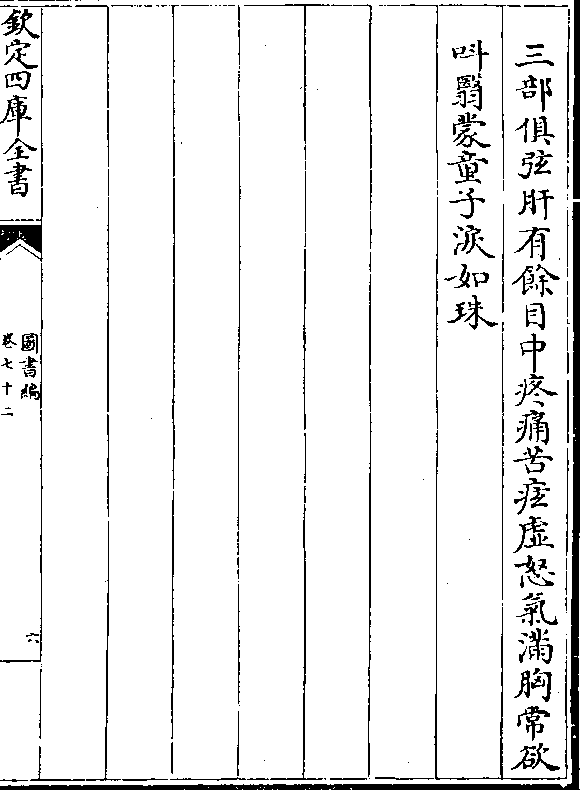 三部俱弦肝有餘目中疼痛苦痃虛怒氣滿胸常欲
呌翳蒙童子淚如珠
欽定四庫全書
圖書編
卷七十二
六